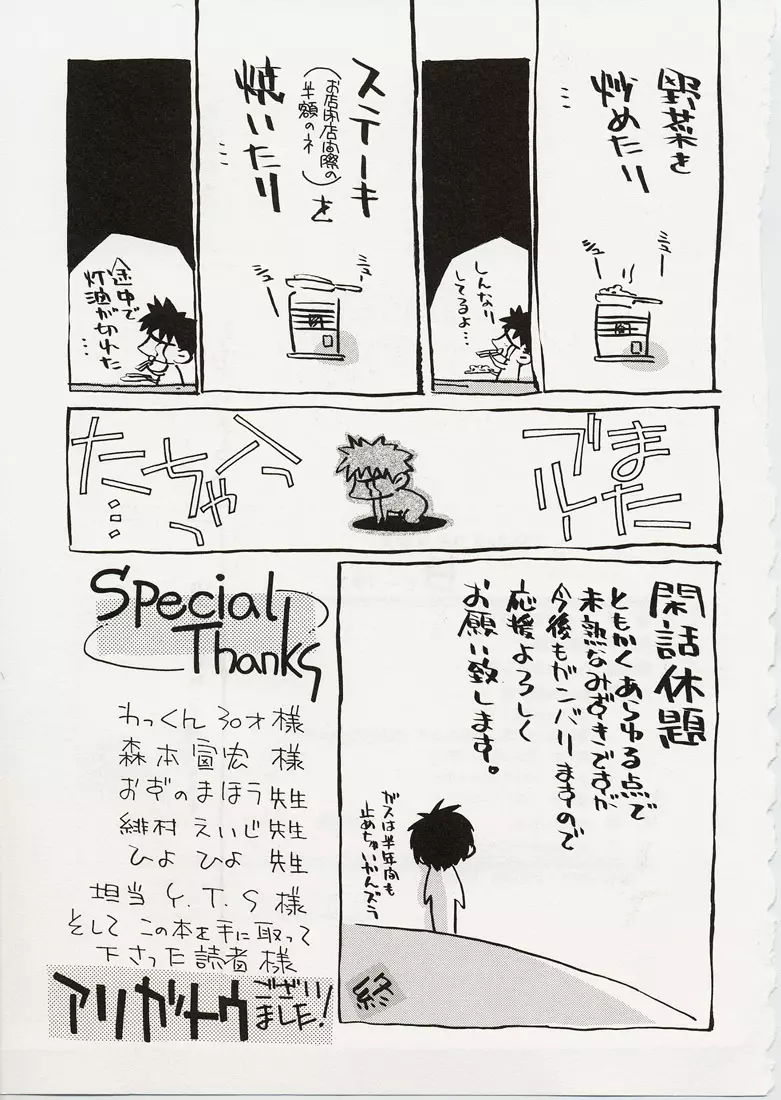 野菜を
炒めたり
…
ミュー
ジュー
しんなり
してるよ…
ステーキ
(お店閉店間際の
半額のネ)
を
焼いたり
…
ミュー
ジュー
途中で
灯油が切れた
…
また
ブルー
入っ
ちゃっ
た…
閑話休題
ともかくあらゆる点で
未熟なみずきですが
今後もガンバりますので
応援よろしく
お願い致します。
ガスは半年間も
止めちゃいかんズラ
終
Special
Thanks
わっくん30才様
森本宣宏 様
おぎのまほう先生
緋村 えいじ先生
ひよひよ 先生
担当 Y.T.S様
そして この本を手に取って
下さった読者様
アリガトウございました!